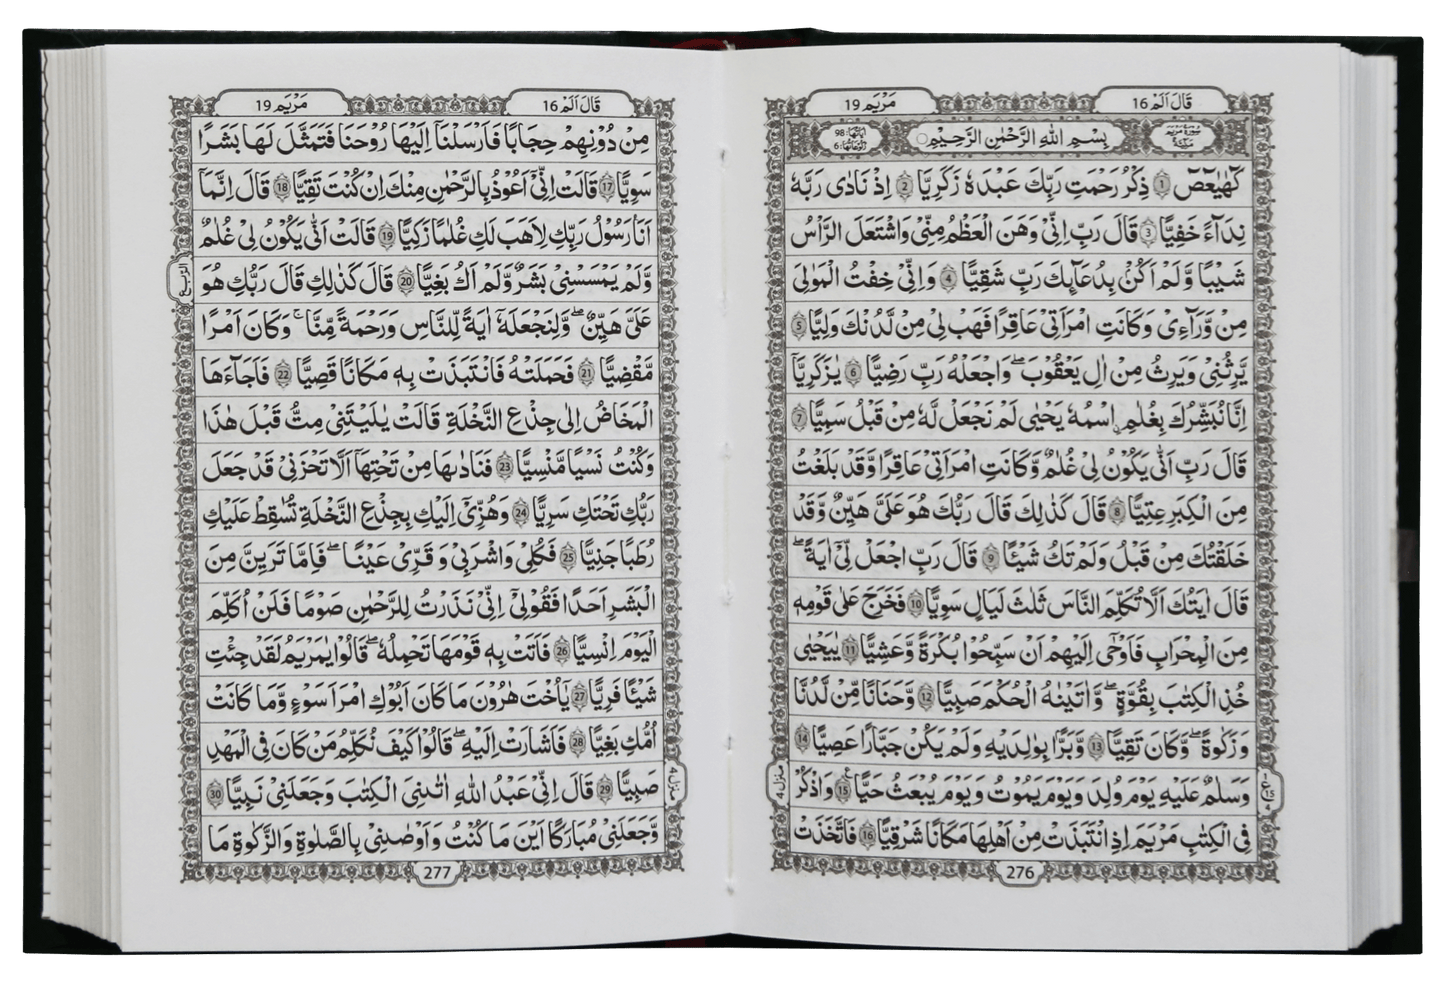 قَالَ اَلَمْ 16
مَرْیَم 19
سُوْرَةُ مَرْیَمَ مَكِّیَّةٌ
بِسْمِ اللّٰهِ الرَّحْمٰنِ الرَّحِیْمِ
اٰیَاتُهَا: 98 رُكُوْعَاتُهَا: 6
كٓهٰیٰعٓصٓ 1 ذِكْرُ رَحْمَتِ رَبِّكَ عَبْدَهٗ زَكَرِیَّا 2 اِذْ نَادٰى رَبَّهٗ
نِدَآءً خَفِیًّا 3 قَالَ رَبِّ اِنِّیْ وَهَنَ الْعَظْمُ مِنِّیْ وَاشْتَعَلَ الرَّاْسُ
شَیْبًا وَّلَمْ اَكُنْۢ بِدُعَآىِٕكَ رَبِّ شَقِیًّا 4 وَاِنِّیْ خِفْتُ الْمَوَالِیَ
مِنْ وَّرَآءِیْ وَكَانَتِ امْرَاَتِیْ عَاقِرًا فَهَبْ لِیْ مِنْ لَّدُنْكَ وَلِیًّا 5
یَّرِثُنِیْ وَیَرِثُ مِنْ اٰلِ یَعْقُوْبَ ۖۗ وَاجْعَلْهُ رَبِّ رَضِیًّا 6 یٰزَكَرِیَّاۤ
اِنَّا نُبَشِّرُكَ بِغُلٰمِ ِۨاسْمُهٗ یَحْیٰى لَمْ نَجْعَلْ لَّهٗ مِنْ قَبْلُ سَمِیًّا 7
قَالَ رَبِّ اَنّٰى یَكُوْنُ لِیْ غُلٰمٌ وَّكَانَتِ امْرَاَتِیْ عَاقِرًا وَّقَدْ بَلَغْتُ
مِنَ الْكِبَرِ عِتِیًّا 8 قَالَ كَذٰلِكَ قَالَ رَبُّكَ هُوَ عَلَیَّ هَیِّنٌ وَّقَدْ
خَلَقْتُكَ مِنْ قَبْلُ وَلَمْ تَكُ شَیْـًٔا 9 قَالَ رَبِّ اجْعَلْ لِّیْۤ اٰیَةً ؕ
قَالَ اٰیَتُكَ اَلَّا تُكَلِّمَ النَّاسَ ثَلٰثَ لَیَالٍ سَوِیًّا 10 فَخَرَجَ عَلٰى قَوْمِهٖ
مِنَ الْمِحْرَابِ فَاَوْحٰۤى اِلَیْهِمْ اَنْ سَبِّحُوْا بُكْرَةً وَّعَشِیًّا 11 یٰیَحْیٰى
خُذِ الْكِتٰبَ بِقُوَّةٍ ؕ وَاٰتَیْنٰهُ الْحُكْمَ صَبِیًّا 12 وَّحَنَانًا مِّنْ لَّدُنَّا
وَزَكٰوةً ؕ وَكَانَ تَقِیًّا 13 وَّبَرًّۢا بِوَالِدَیْهِ وَلَمْ یَكُنْ جَبَّارًا عَصِیًّا 14
وَسَلٰمٌ عَلَیْهِ یَوْمَ وُلِدَ وَیَوْمَ یَمُوْتُ وَیَوْمَ یُبْعَثُ حَیًّا 15 وَاذْكُرْ
فِی الْكِتٰبِ مَرْیَمَ اِذِ انْتَبَذَتْ مِنْ اَهْلِهَا مَكَانًا شَرْقِیًّا 16 فَاتَّخَذَتْ
منزل 4
276
قَالَ اَلَمْ 16
مَرْیَم 19
مِنْ دُوْنِهِمْ حِجَابًا فَاَرْسَلْنَاۤ اِلَیْهَا رُوْحَنَا فَتَمَثَّلَ لَهَا بَشَرًا
سَوِیًّا 17 قَالَتْ اِنِّیْۤ اَعُوْذُ بِالرَّحْمٰنِ مِنْكَ اِنْ كُنْتَ تَقِیًّا 18 قَالَ اِنَّمَاۤ
اَنَا رَسُوْلُ رَبِّكِ لِاَهَبَ لَكِ غُلٰمًا زَكِیًّا 19 قَالَتْ اَنّٰى یَكُوْنُ لِیْ غُلٰمٌ
وَّلَمْ یَمْسَسْنِیْ بَشَرٌ وَّلَمْ اَكُ بَغِیًّا 20 قَالَ كَذٰلِكِ قَالَ رَبُّكِ هُوَ
عَلَیَّ هَیِّنٌ ۚ وَلِنَجْعَلَهٗۤ اٰیَةً لِّلنَّاسِ وَرَحْمَةً مِّنَّا ۚ وَكَانَ اَمْرًا
مَّقْضِیًّا 21 فَحَمَلَتْهُ فَانْتَبَذَتْ بِهٖ مَكَانًا قَصِیًّا 22 فَاَجَآءَهَا
الْمَخَاضُ اِلٰى جِذْعِ النَّخْلَةِ قَالَتْ یٰلَیْتَنِیْ مِتُّ قَبْلَ هٰذَا
وَكُنْتُ نَسْیًا مَّنْسِیًّا 23 فَنَادٰىهَا مِنْ تَحْتِهَاۤ اَلَّا تَحْزَنِیْ قَدْ جَعَلَ
رَبُّكِ تَحْتَكِ سَرِیًّا 24 وَهُزِّیْۤ اِلَیْكِ بِجِذْعِ النَّخْلَةِ تُسٰقِطْ عَلَیْكِ
رُطَبًا جَنِیًّا 25 فَكُلِیْ وَاشْرَبِیْ وَقَرِّیْ عَیْنًا ۚ فَاِمَّا تَرَیِنَّ مِنَ
الْبَشَرِ اَحَدًا فَقُوْلِیْۤ اِنِّیْ نَذَرْتُ لِلرَّحْمٰنِ صَوْمًا فَلَنْ اُكَلِّمَ
الْیَوْمَ اِنْسِیًّا 26 فَاَتَتْ بِهٖ قَوْمَهَا تَحْمِلُهٗ ؕ قَالُوْا یٰمَرْیَمُ لَقَدْ جِئْتِ
شَیْـًٔا فَرِیًّا 27 یٰۤاُخْتَ هٰرُوْنَ مَا كَانَ اَبُوْكِ امْرَاَ سَوْءٍ وَّمَا كَانَتْ
اُمُّكِ بَغِیًّا 28 فَاَشَارَتْ اِلَیْهِ ؕ قَالُوْا كَیْفَ نُكَلِّمُ مَنْ كَانَ فِی الْمَهْدِ
صَبِیًّا 29 قَالَ اِنِّیْ عَبْدُ اللّٰهِ اٰتٰىنِیَ الْكِتٰبَ وَجَعَلَنِیْ نَبِیًّا 30
وَّجَعَلَنِیْ مُبٰرَكًا اَیْنَ مَا كُنْتُ وَاَوْصٰىنِیْ بِالصَّلٰوةِ وَالزَّكٰوةِ مَا
الربع
منزل 4
277